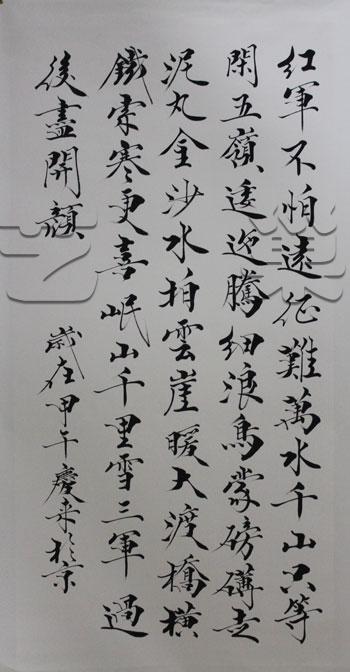 紅軍不怕遠征難萬水千山只等
閑五嶺逶迤騰細浪烏蒙磅礴走
泥丸金沙水拍雲崖暖大渡橋橫
鐵索寒更喜岷山千里雪三軍過
後盡開顏
歲在甲午慶來於京